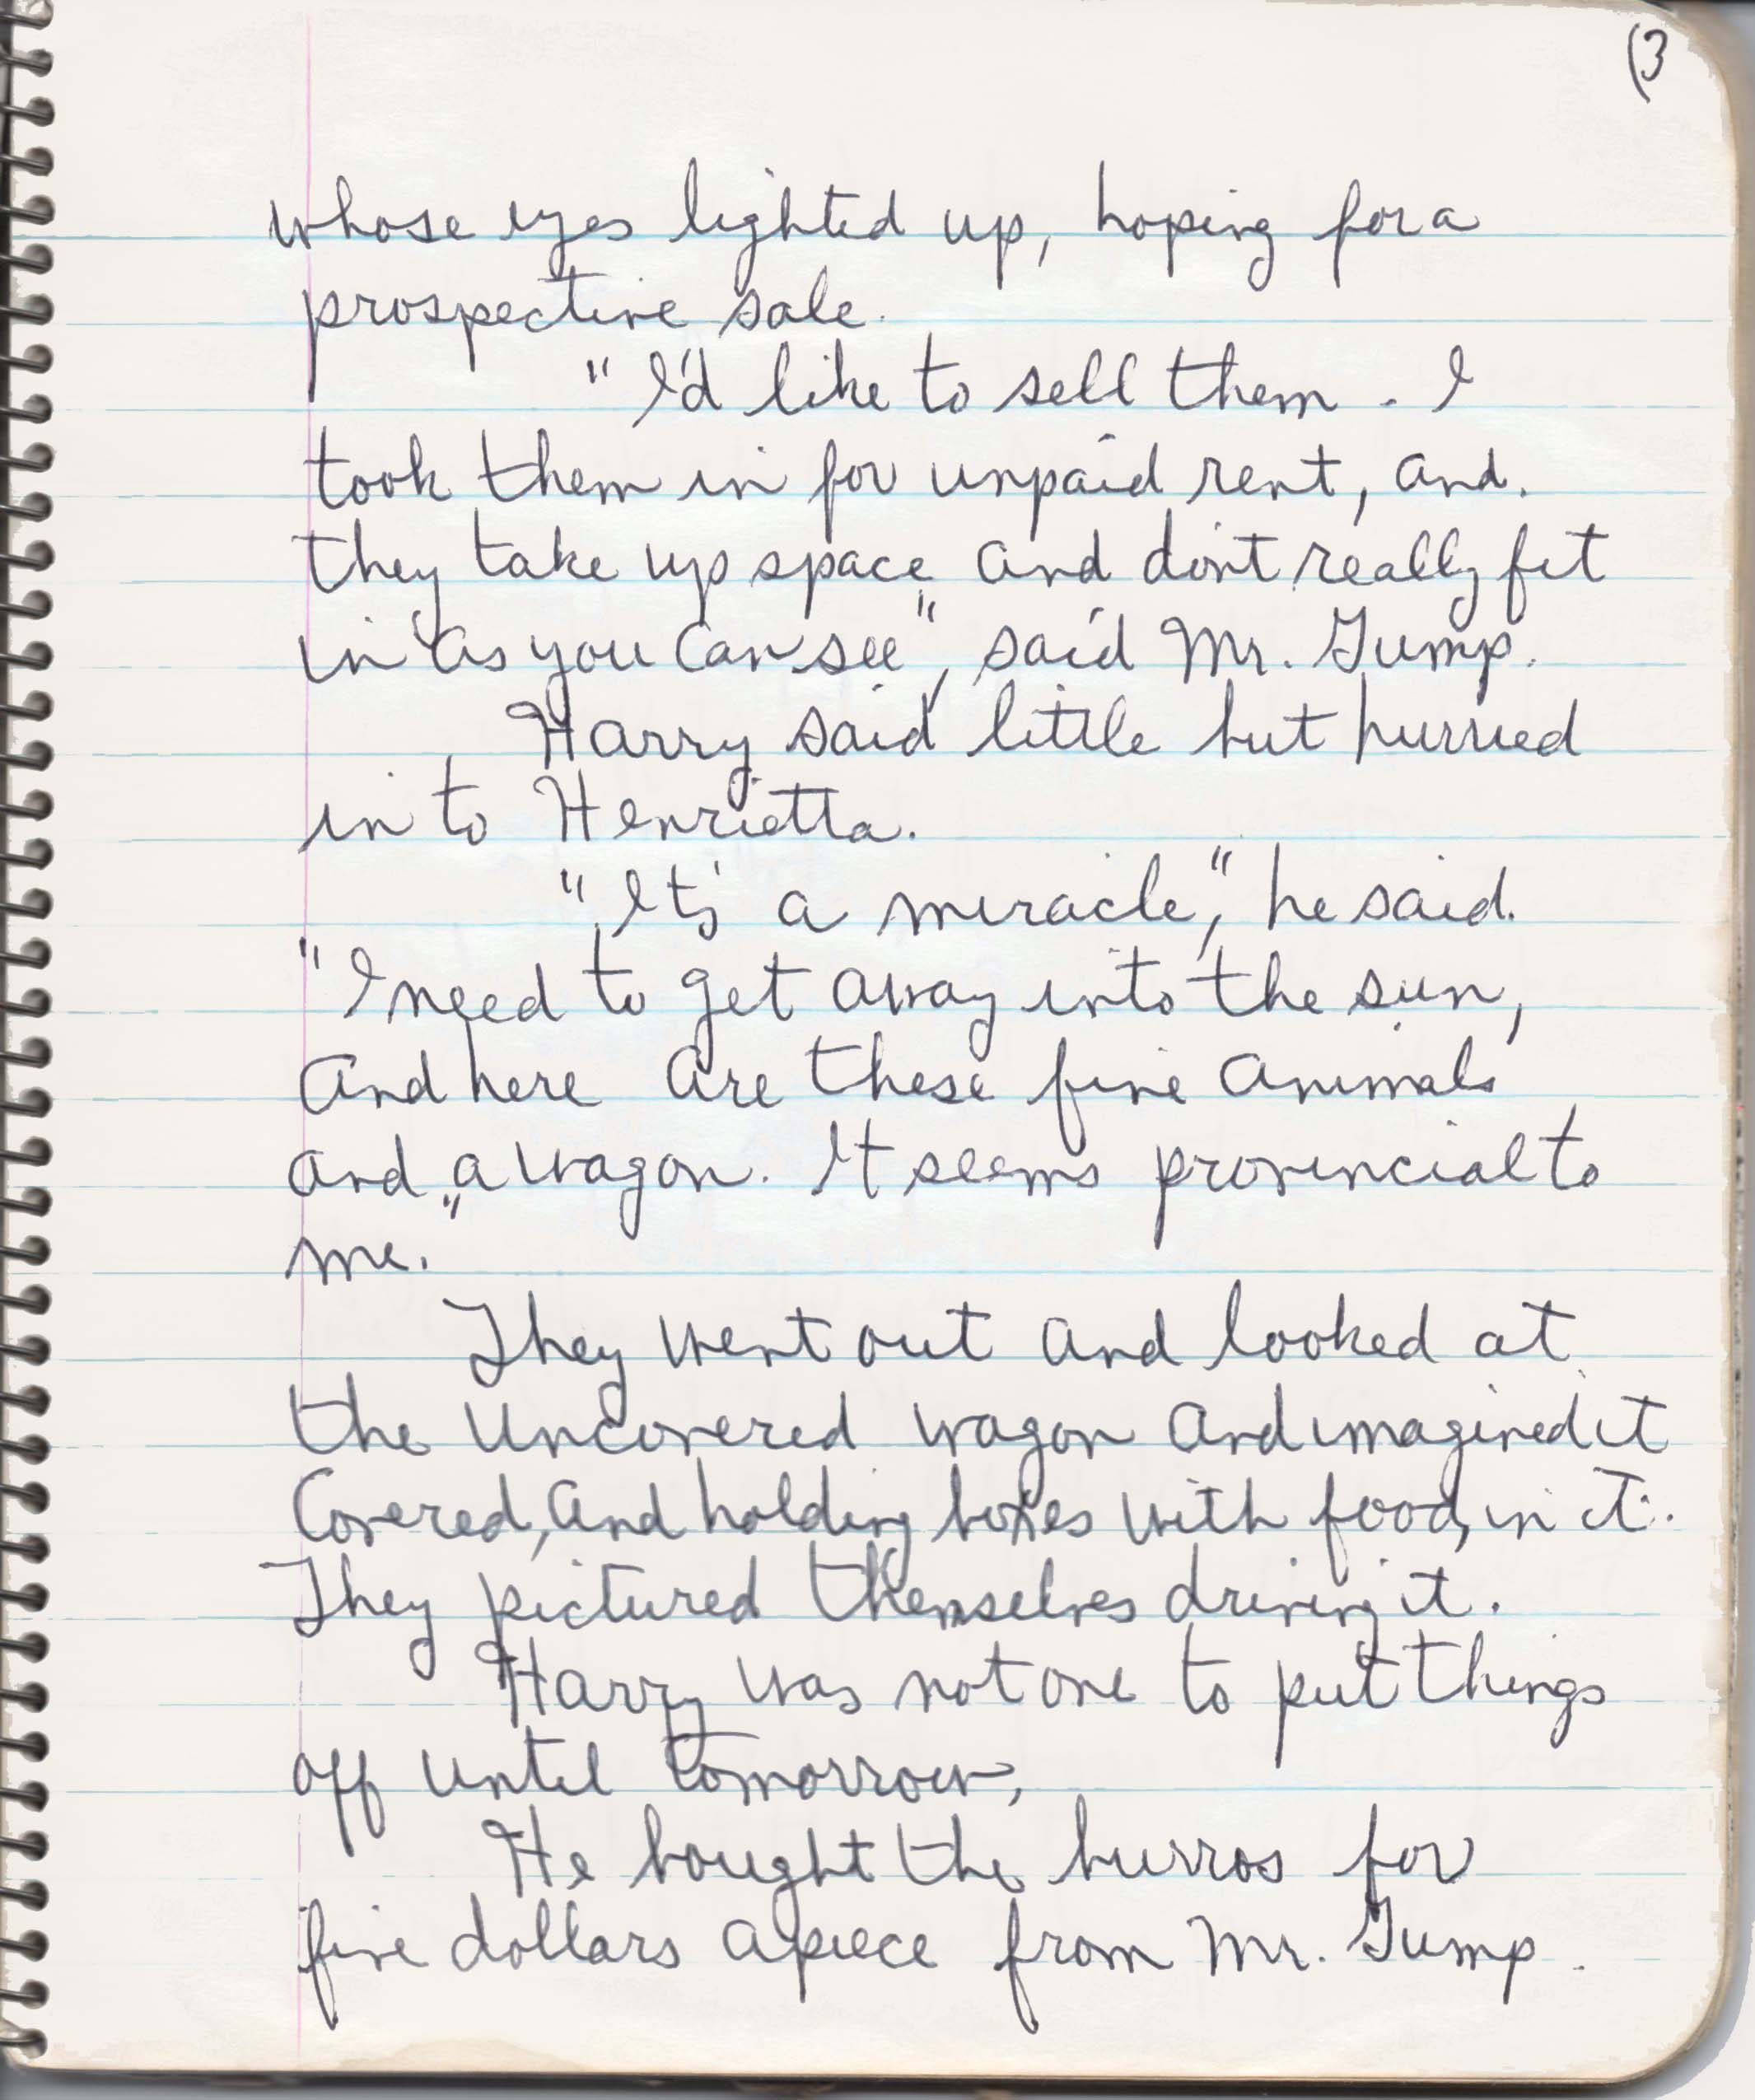 (3
whose eyes lighted up, hoping for a
prospective sale.
"I'd like to sell them. I
took them in for unpaid rent, and.
they take up space and don't really fit
in as you can see", said Mr. Gump.
Harry said little but hurried
in to Henrietta.
"It's a miracle," he said.
"I need to get away into the sun,
and here are these fine animals
and a wagon. It seems provincial to
me."
They went out and looked at
the uncovered wagon and imagined it
covered, and holding boxes with food, in it.
They pictured themselves driving it.
Harry was not one to put things
off until tomorrow,
He bought the burros for
five dollars apiece from Mr. Gump.